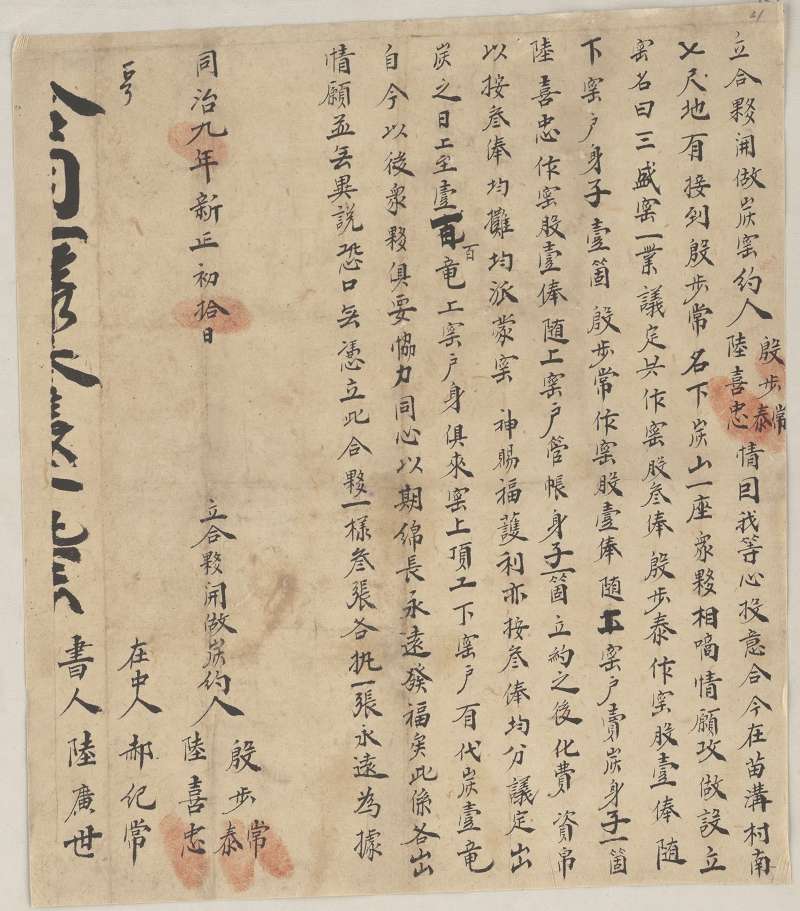 立合夥開做炭窑約人殷步常泰陸喜忠情因我等心投意合今在苗溝村南
乂尺地有接到殷步常名下炭山一座眾夥相啇情願攻做設立
窑名曰三盛窑一業議定共作窑股叁俸殷步泰作窑股壹俸随
下窑户身子壹箇殷步常作窑股壹俸随上窑户賣炭身子一箇
陸喜忠作窑股壹俸随工窑户管帳身子一箇立約之後化費資帛
以按叁俸均攤均派蒙窑神賜福護利亦按叁俸均分議定出
炭之日上至壹百竜工窑户身俱來窑上頂工下窑户有代炭壹竜
百
自今以後眾夥俱要恊力同心以期綿長永遠發福矣此係各出
情願並無異説恐口無憑立此合夥一樣叁張各扎一張永遠為據
同治九年新正初拾日
立合夥開做炭約人殷步常泰陸喜忠
在中人郝纪常
書人陸廣世